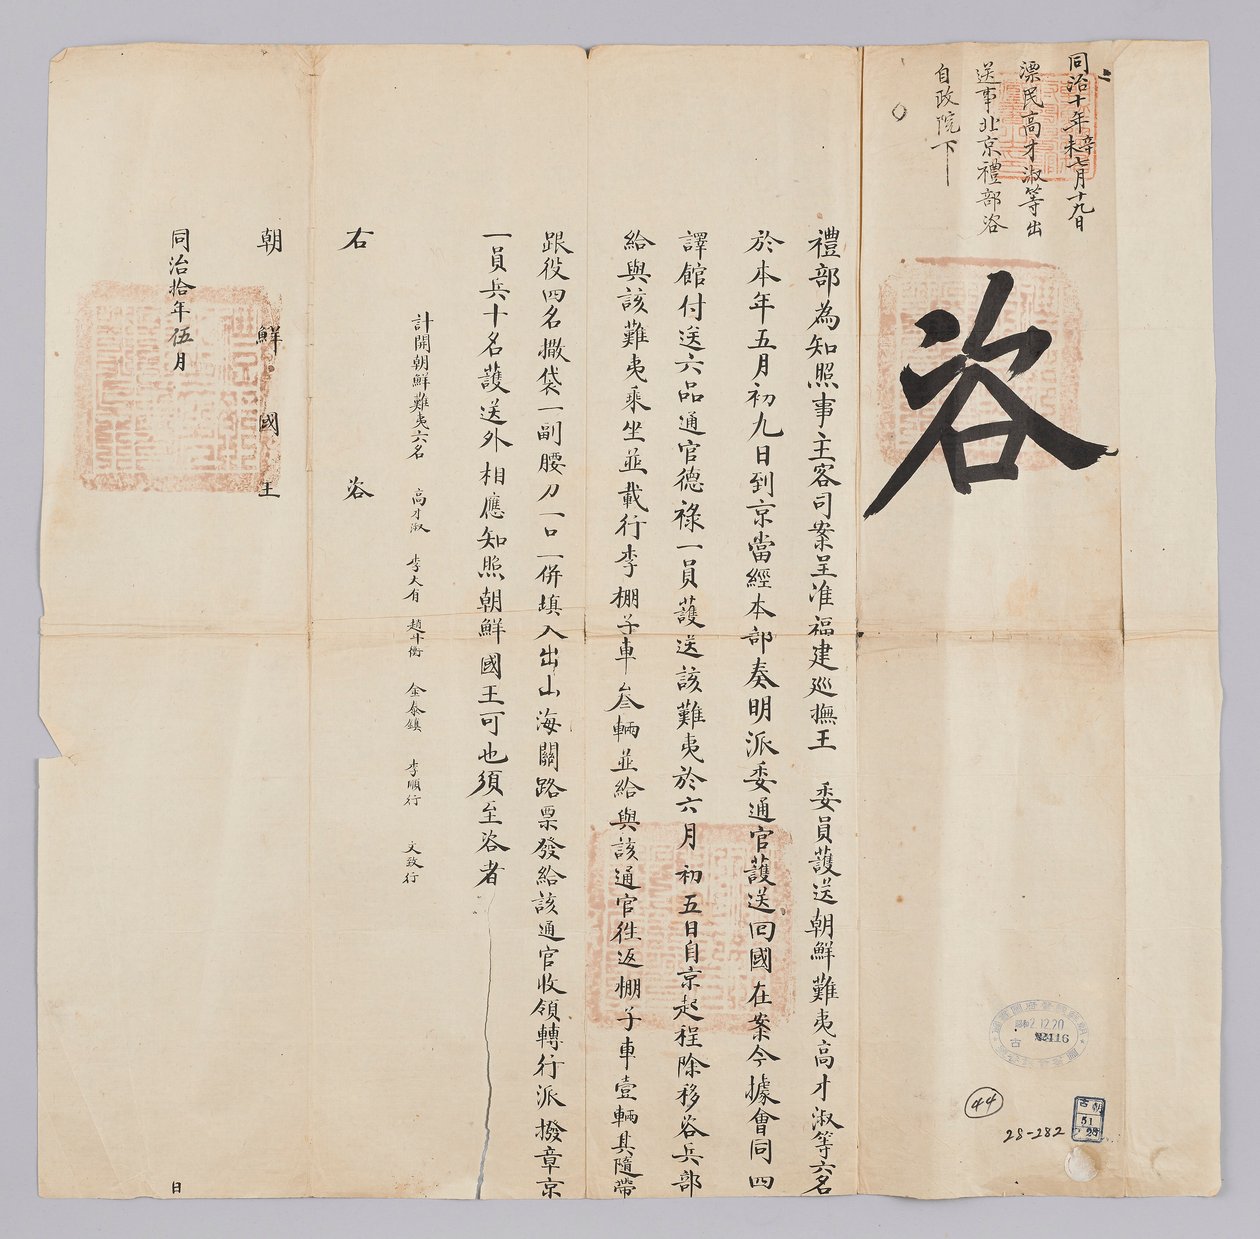 同治十年辛未七月十九日
漂民高才淑等出
送事北京禮部咨
自政院下
咨
禮部為知照事主客司案呈准福建巡撫王 委員護送朝鮮難夷高才淑等六名
於本年五月初九日到京當經本部奏明派委通官護送回國在案今據會同四
譯館付送六品通官德祿一員護送該難夷於六月初五日自京起程除移咨兵部
給與該難夷乘坐並載行李棚子車叁輛並給與該通官往返棚子車壹輛其隨帶
跟役四名撒袋一副腰刀一口一併填入出山海關路票發給該通官收領轉行派撥章京
一員兵十名護送外相應知照朝鮮國王可也須至咨者
計開朝鮮難夷六名 高才淑 李大有 趙斗衡 金泰鎮 李順行 文致行
右 咨
朝鮮國王
同治拾年伍月 日
昭和2.12.20
古
44
28-282
朝
古
51